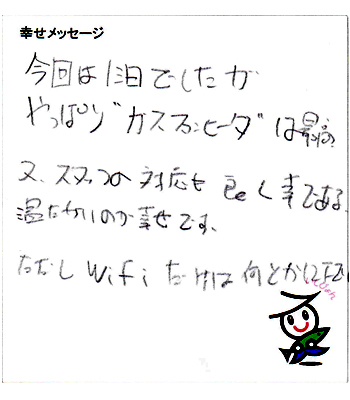 幸せメッセージ
今回は1泊でしたが
やっぱり"カスタンヒーダ"は最高
又、スタッフの対応も良く幸である
温たかいのが幸せです、
ただし Wifi だけは何とかして